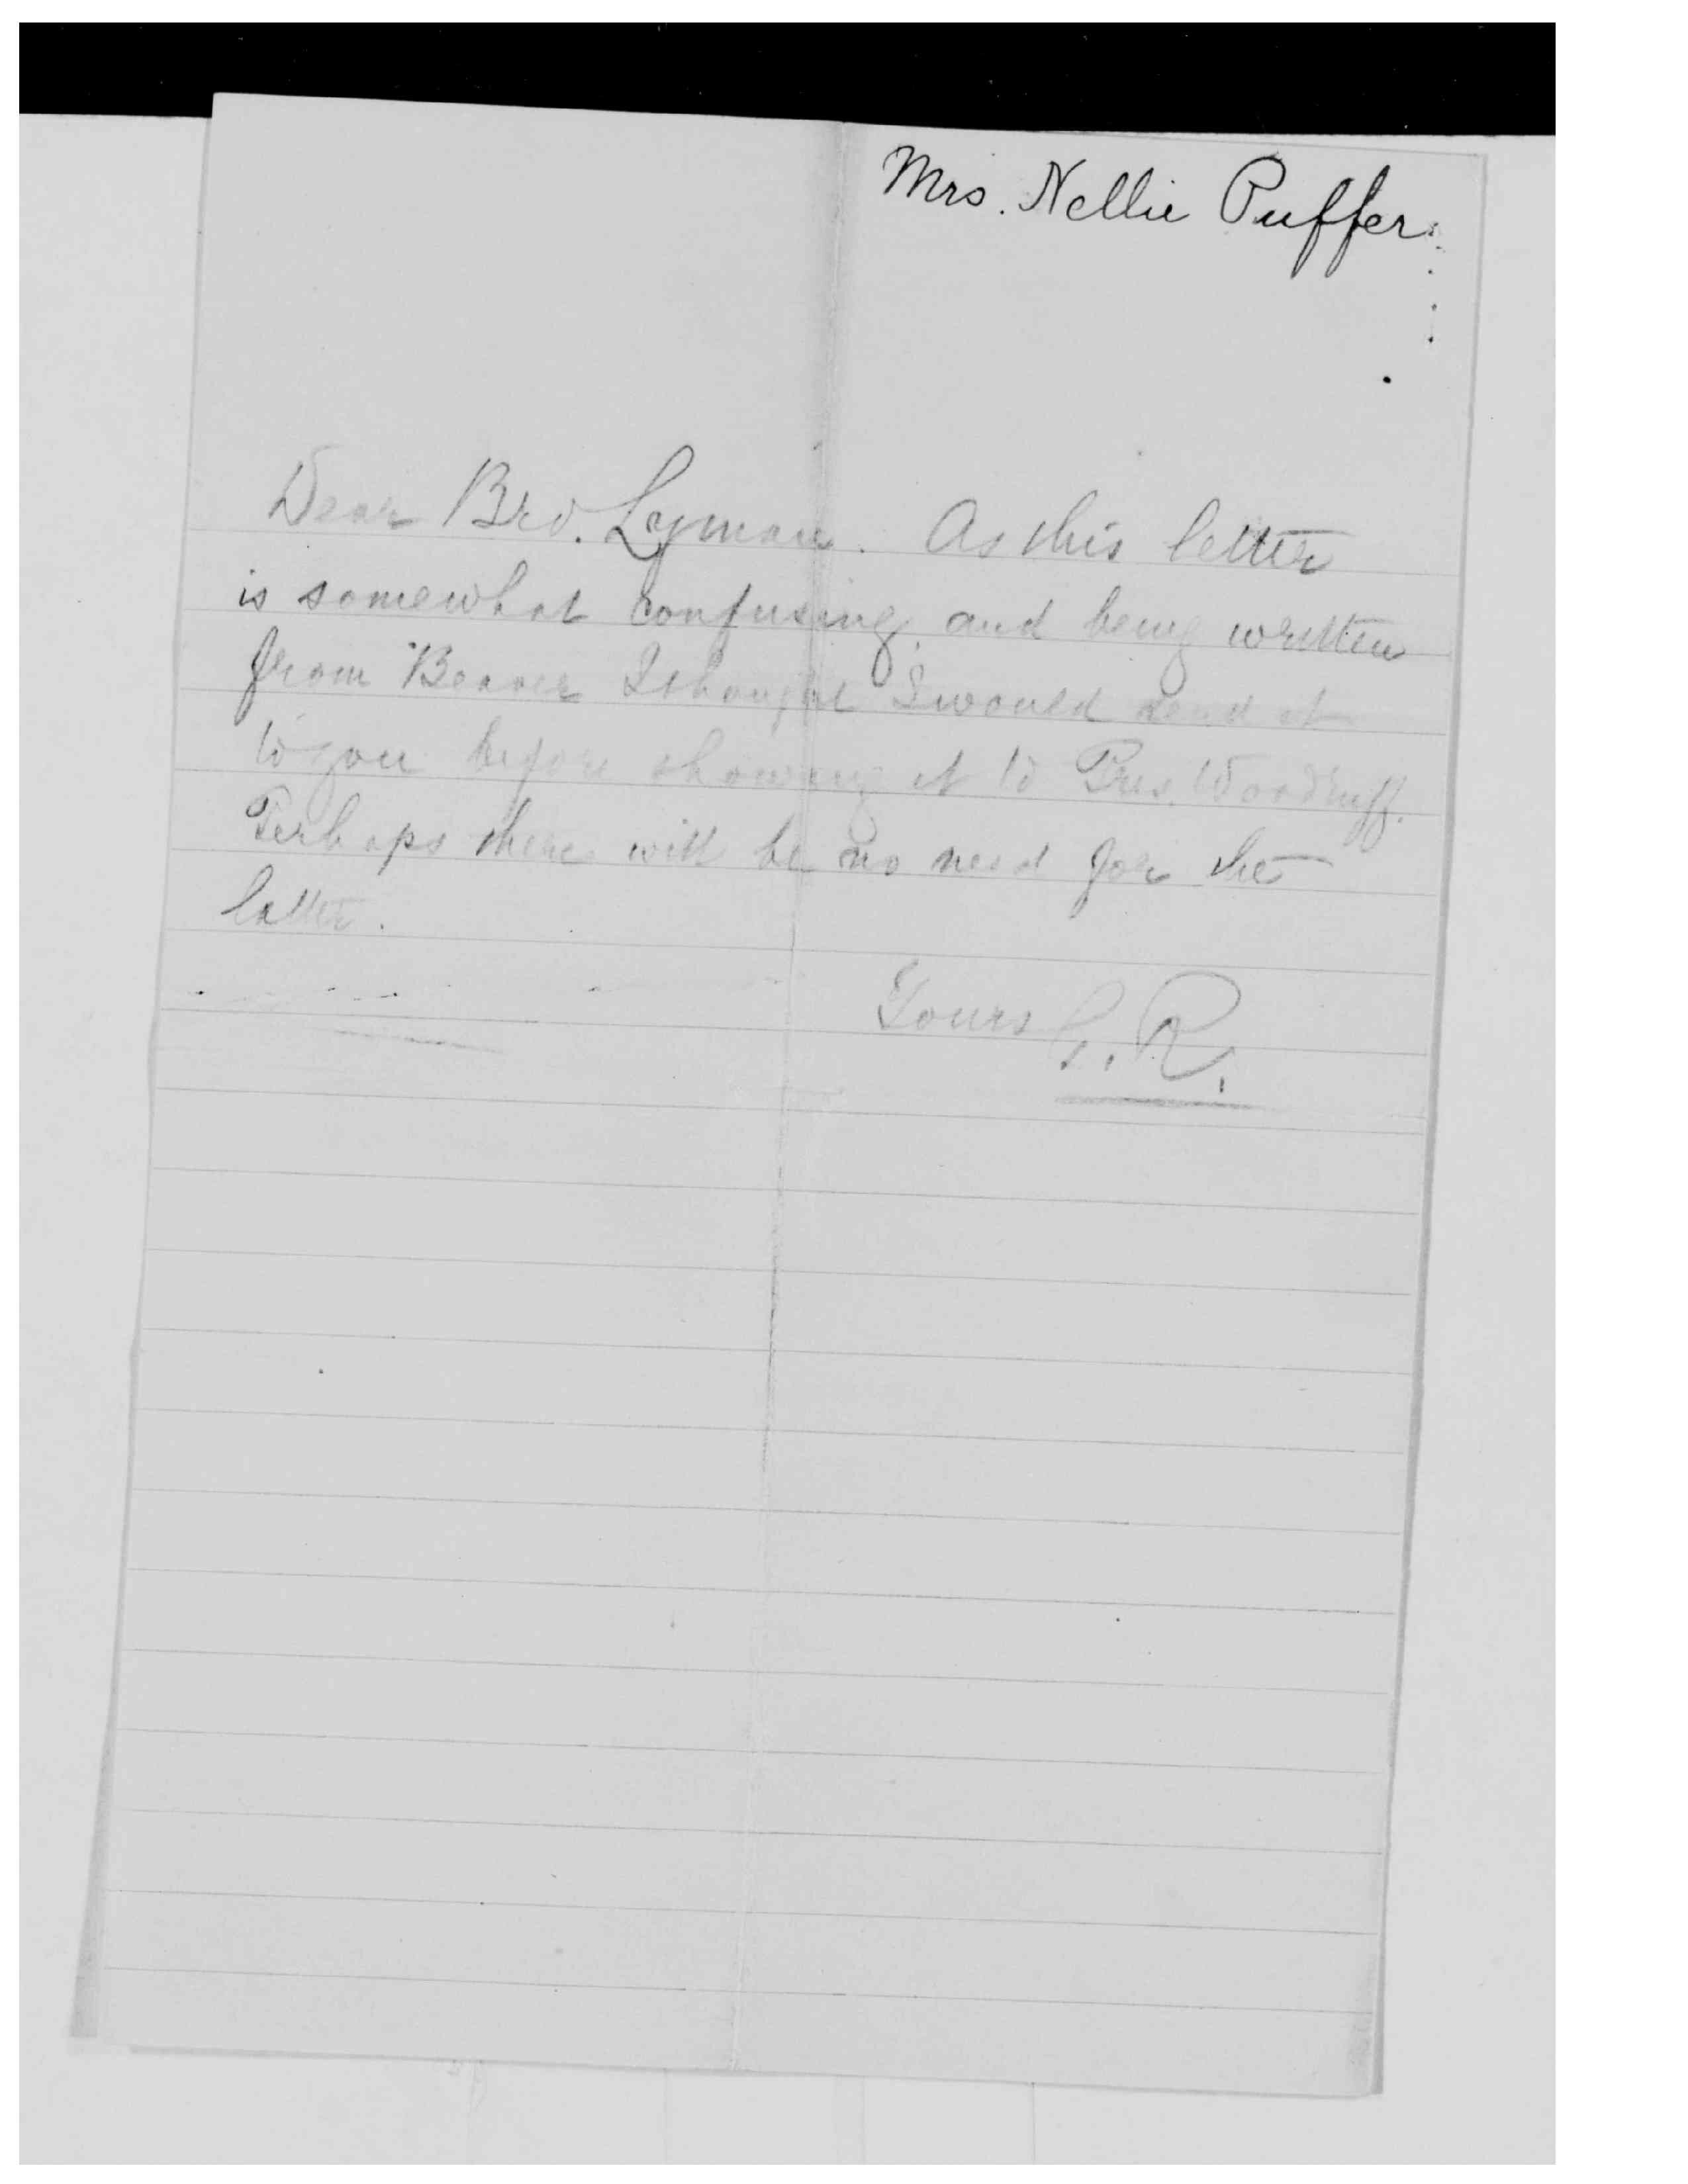 Mrs. Nellie Puffer.
Dear Bro. Lyman. As this letter
is somewhat confusing, and being written
from Beaver I thought I would send it
to you before showing it to Pres. Woodruff.
Perhaps there will be no need for the
latter.
Yours G. R.